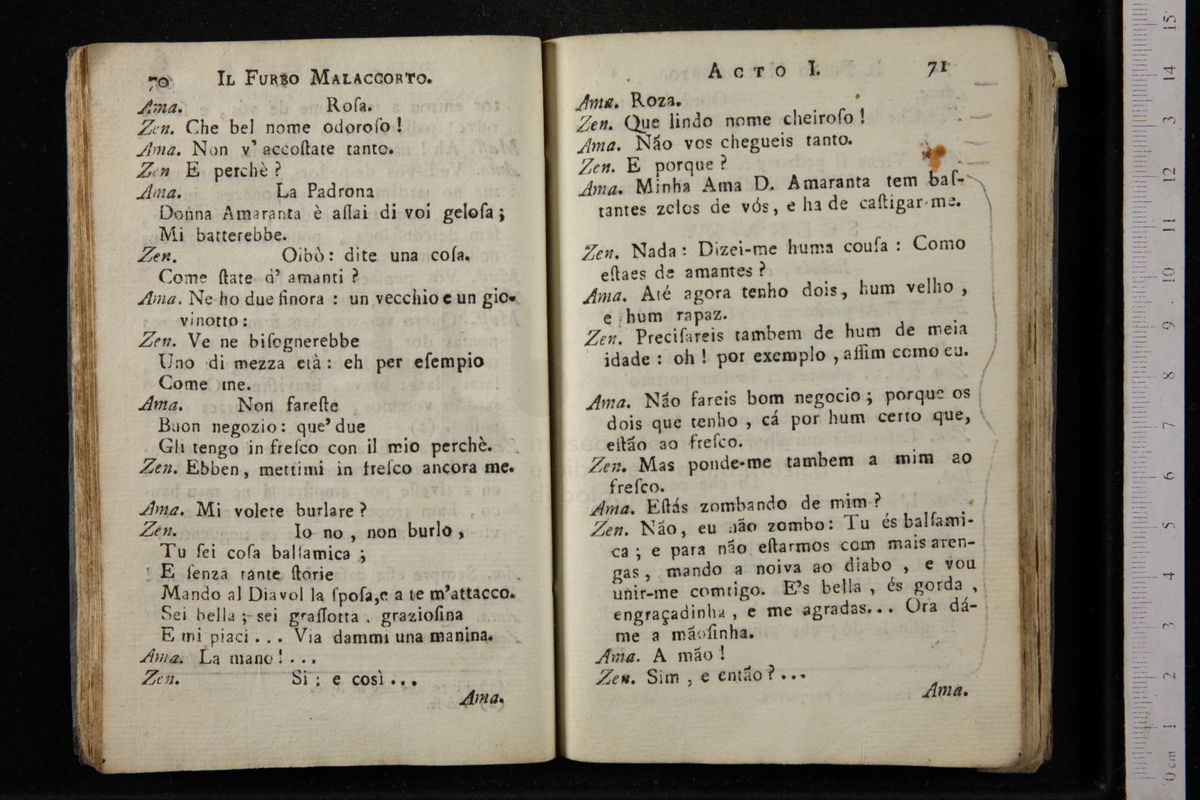 70 IL FURBO MALACCORTO.
Ama. Roſa.
Zen. Che bel nome odoroſo !
Ama. Non v' accoſtate tanto.
Zen E perchè ?
Ama. La Padrona
Donna Amaranta è aſſai di voi geloſa ;
Mi batterebbe.
Zen. Oibò : dite una coſa.
Come ſtate d' amanti ?
Ama. Ne ho due finora : un vecchio e un gio-
vinotto :
Zen. Ve ne biſognerebbe
Uno di mezza età : eh per eſempio
Come me.
Ama. Non fareſte
Buon negozio : que' due
Gli tengo in freſco con il mio perchè.
Zen. Ebben, mettimi in freſco ancora me.
Ama. Mi volete burlare ?
Zen. Io no , non burlo ,
Tu ſei coſa balſamica ;
E ſenza tante ſtorie
Mando al Diavol la ſpoſa,e a te m'attacco.
Sei bella ; sei graſſotta . grazioſina
E mi piaci . . . Via dammi una manina.
Ama. La mano ! . . .
Zen. Si ; e così . . .
Ama.
ACTO I. 71
Ama. Roza.
Zen. Que lindo nome cheiroſo !
Ama. Não vos chegueis tanto.
Zen. E porque ?
Ama. Minha Ama D. Amaranta tem baſ-
tantes zelos de vós, e ha de caſtigar-me.
Zen. Nada : Dizei-me huma couſa : Como
eſtaes de amantes ?
Ama. Até agora tenho dois, hum velho ,
e hum rapaz.
Zen. Preciſareis tambem de hum de meia
idade : oh ! por exemplo , aſſim como eu.
Ama. Não fareis bom negocio ; porque os
dois que tenho , cá por hum certo que,
eſtão ao freſco.
Zen. Mas ponde-me tambem a mim ao
freſco.
Ama. Eſtás zombando de mim ?
Zen. Não, eu não zombo : Tu és balſami-
ca ; e para não eſtarmos com mais aren-
gas , mando a noiva ao diabo , e vou
unir-me comtigo. E's bella , és gorda ,
engraçadinha , e me agradas... Ora dá-
me a mãoſinha.
Ama. A mão !
Zen. Sim , e então ? ...
Ama.